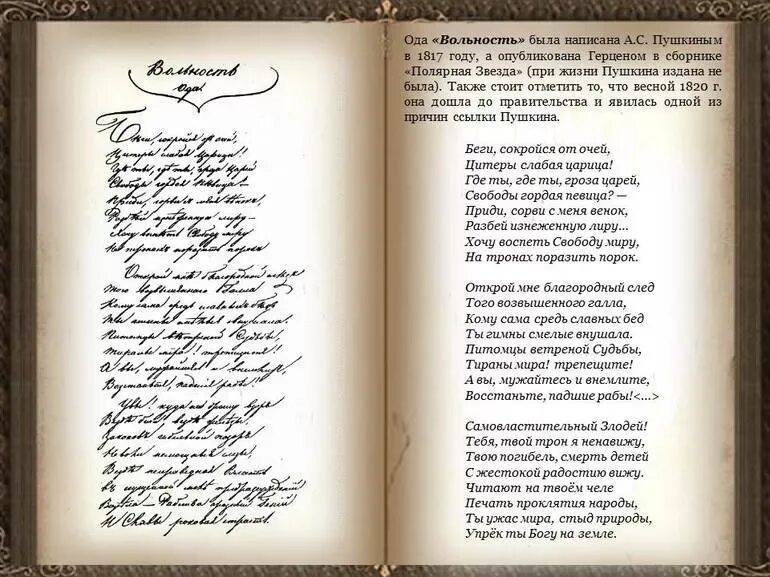 Вольность
Ода.
Беги, сокройся от очей,
Цитеры слабая Царица!
Где ты, где ты, гроза Царей
Свободы гордая певица? —
Приди, сорви с меня венок,
Разбей изнеженную лиру —
Хочу воспеть Свободу миру
На тронах поразить порок
Открой мне благородный след
Того возвышенного Галла
Кому сама средь славных бед
Ты гимны смелые внушала.
Питомцы ветреной Судьбы,
Тираны мира! трепещите!
А вы, мужайтесь и внемлите,
Восстаньте, падшие рабы!
Увы! куда ни брошу взор
Везде бичи, везде железы,
Законов гибельный позор
Неволи немощные слезы,
Везде неправедная Власть
В сгущенной мгле предрассуждений
Воссела — Рабства грозный Гений
И Славы роковая страсть.
Ода «Вольность» была написана А.С. Пушкиным
в 1817 году, а опубликована Герценом в сборнике
«Полярная Звезда» (при жизни Пушкина издана не
была). Также стоит отметить то, что весной 1820 г.
она дошла до правительства и явилась одной из
причин ссылки Пушкина.
Беги, сокройся от очей,
Цитеры слабая царица!
Где ты, где ты, гроза царей,
Свободы гордая певица? —
Приди, сорви с меня венок,
Разбей изнеженную лиру...
Хочу воспеть Свободу миру,
На тронах поразить порок.
Открой мне благородный след
Того возвышенного галла,
Кому сама средь славных бед
Ты гимны смелые внушала.
Питомцы ветреной Судьбы,
Тираны мира! трепещите!
А вы, мужайтесь и внемлите,
Восстаньте, падшие рабы!<...>
Самовластительный Злодей!
Тебя, твой трон я ненавижу,
Твою погибель, смерть детей
С жестокой радостию вижу.
Читают на твоём челе
Печать проклятия народы,
Ты ужас мира, стыд природы,
Упрёк ты Богу на земле.